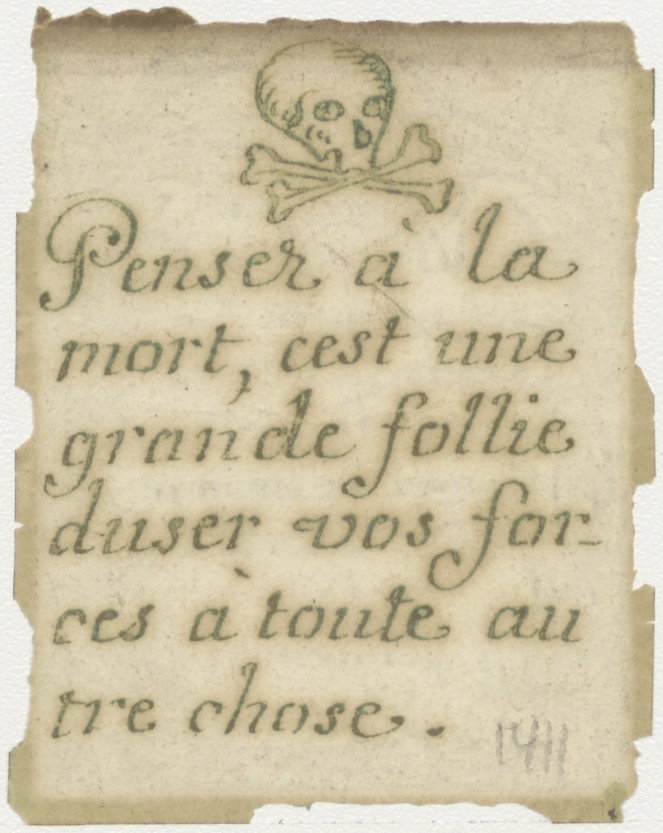 Penser à la
mort, cest une
grande follie
duser vos for-
ces à toute au
tre chose.